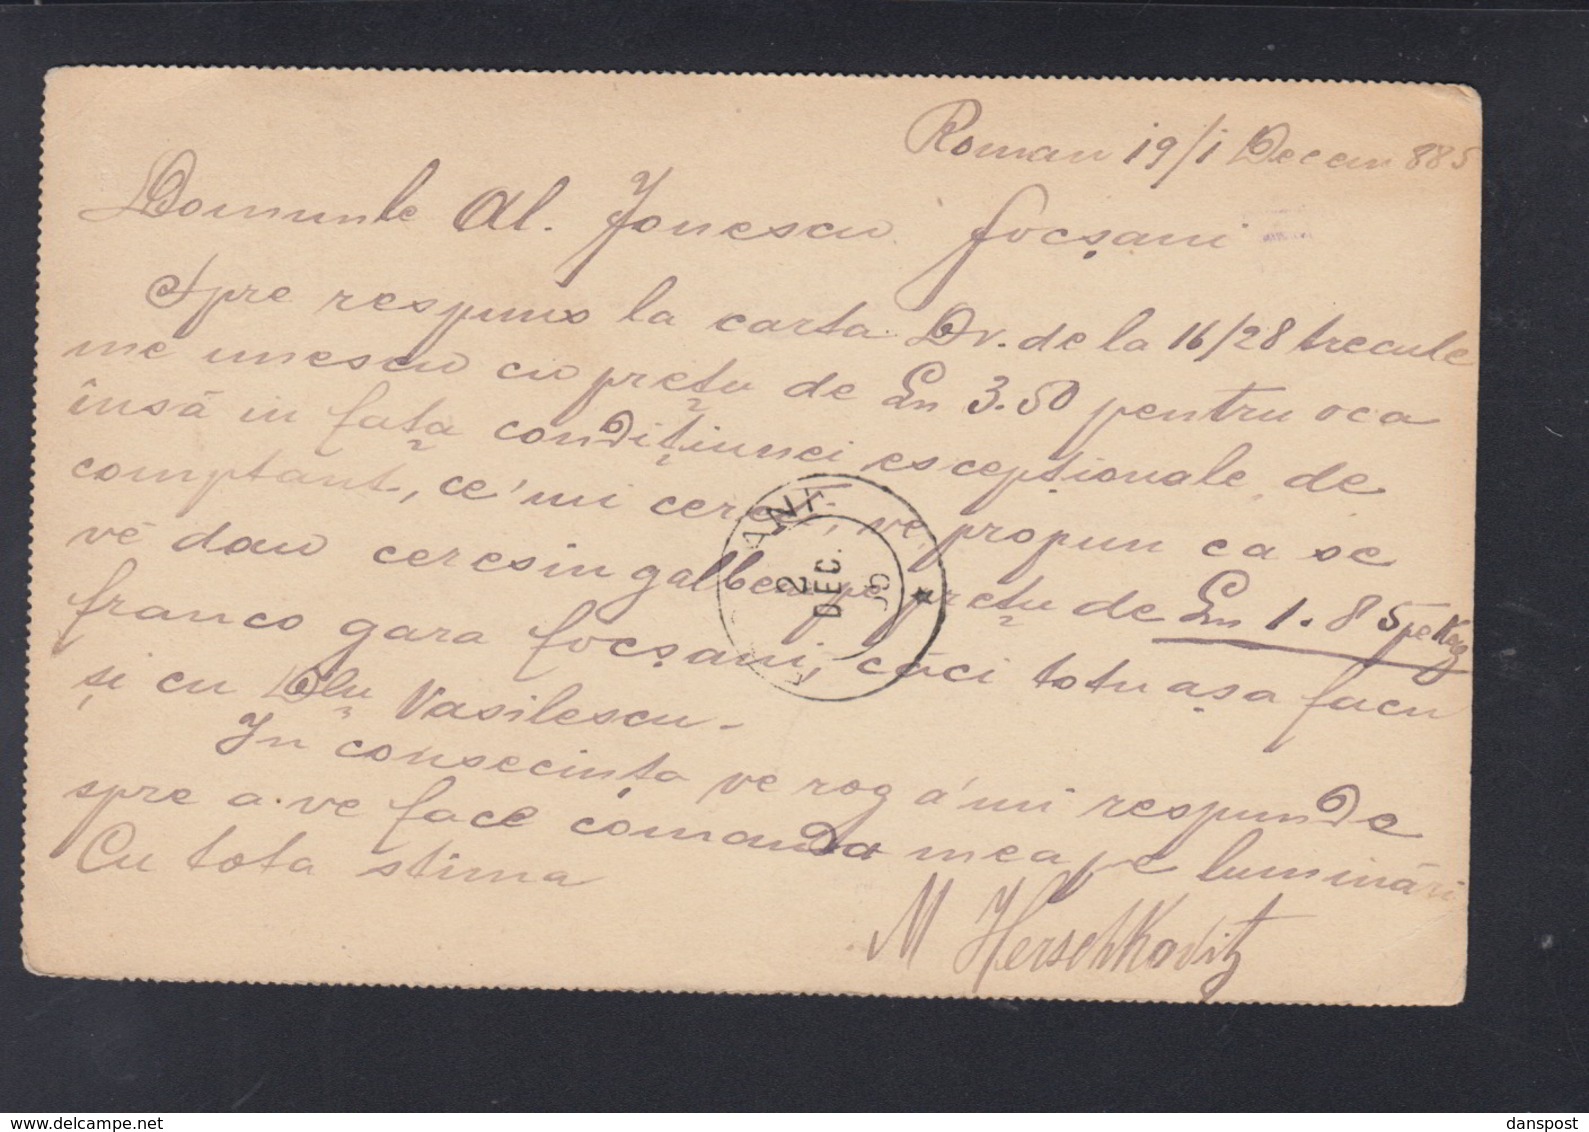 Roman 19/1 Decem 885
Domnule Al. Jonescu Focșani
Spre respuns la carta Dv. de la 16/28 trecute
me unescu cu prețu de Ln 3.50 pentru oca
însă in fața condițiunei escepționale de
comptant, ce'mi cereți, ve propun ca se
vĕ dau ceresin galben pe prețu de Ln 1.85 pe Kog
franco gara Focșani, căci totu așa facu
și cu Dlu Vasilescu.
In consecința ve rog a'mi respunde
spre a. ve face comanda mea pe luminări
Cu tota stima
M Herschkovitz
ANI
2
DEC.
danspost